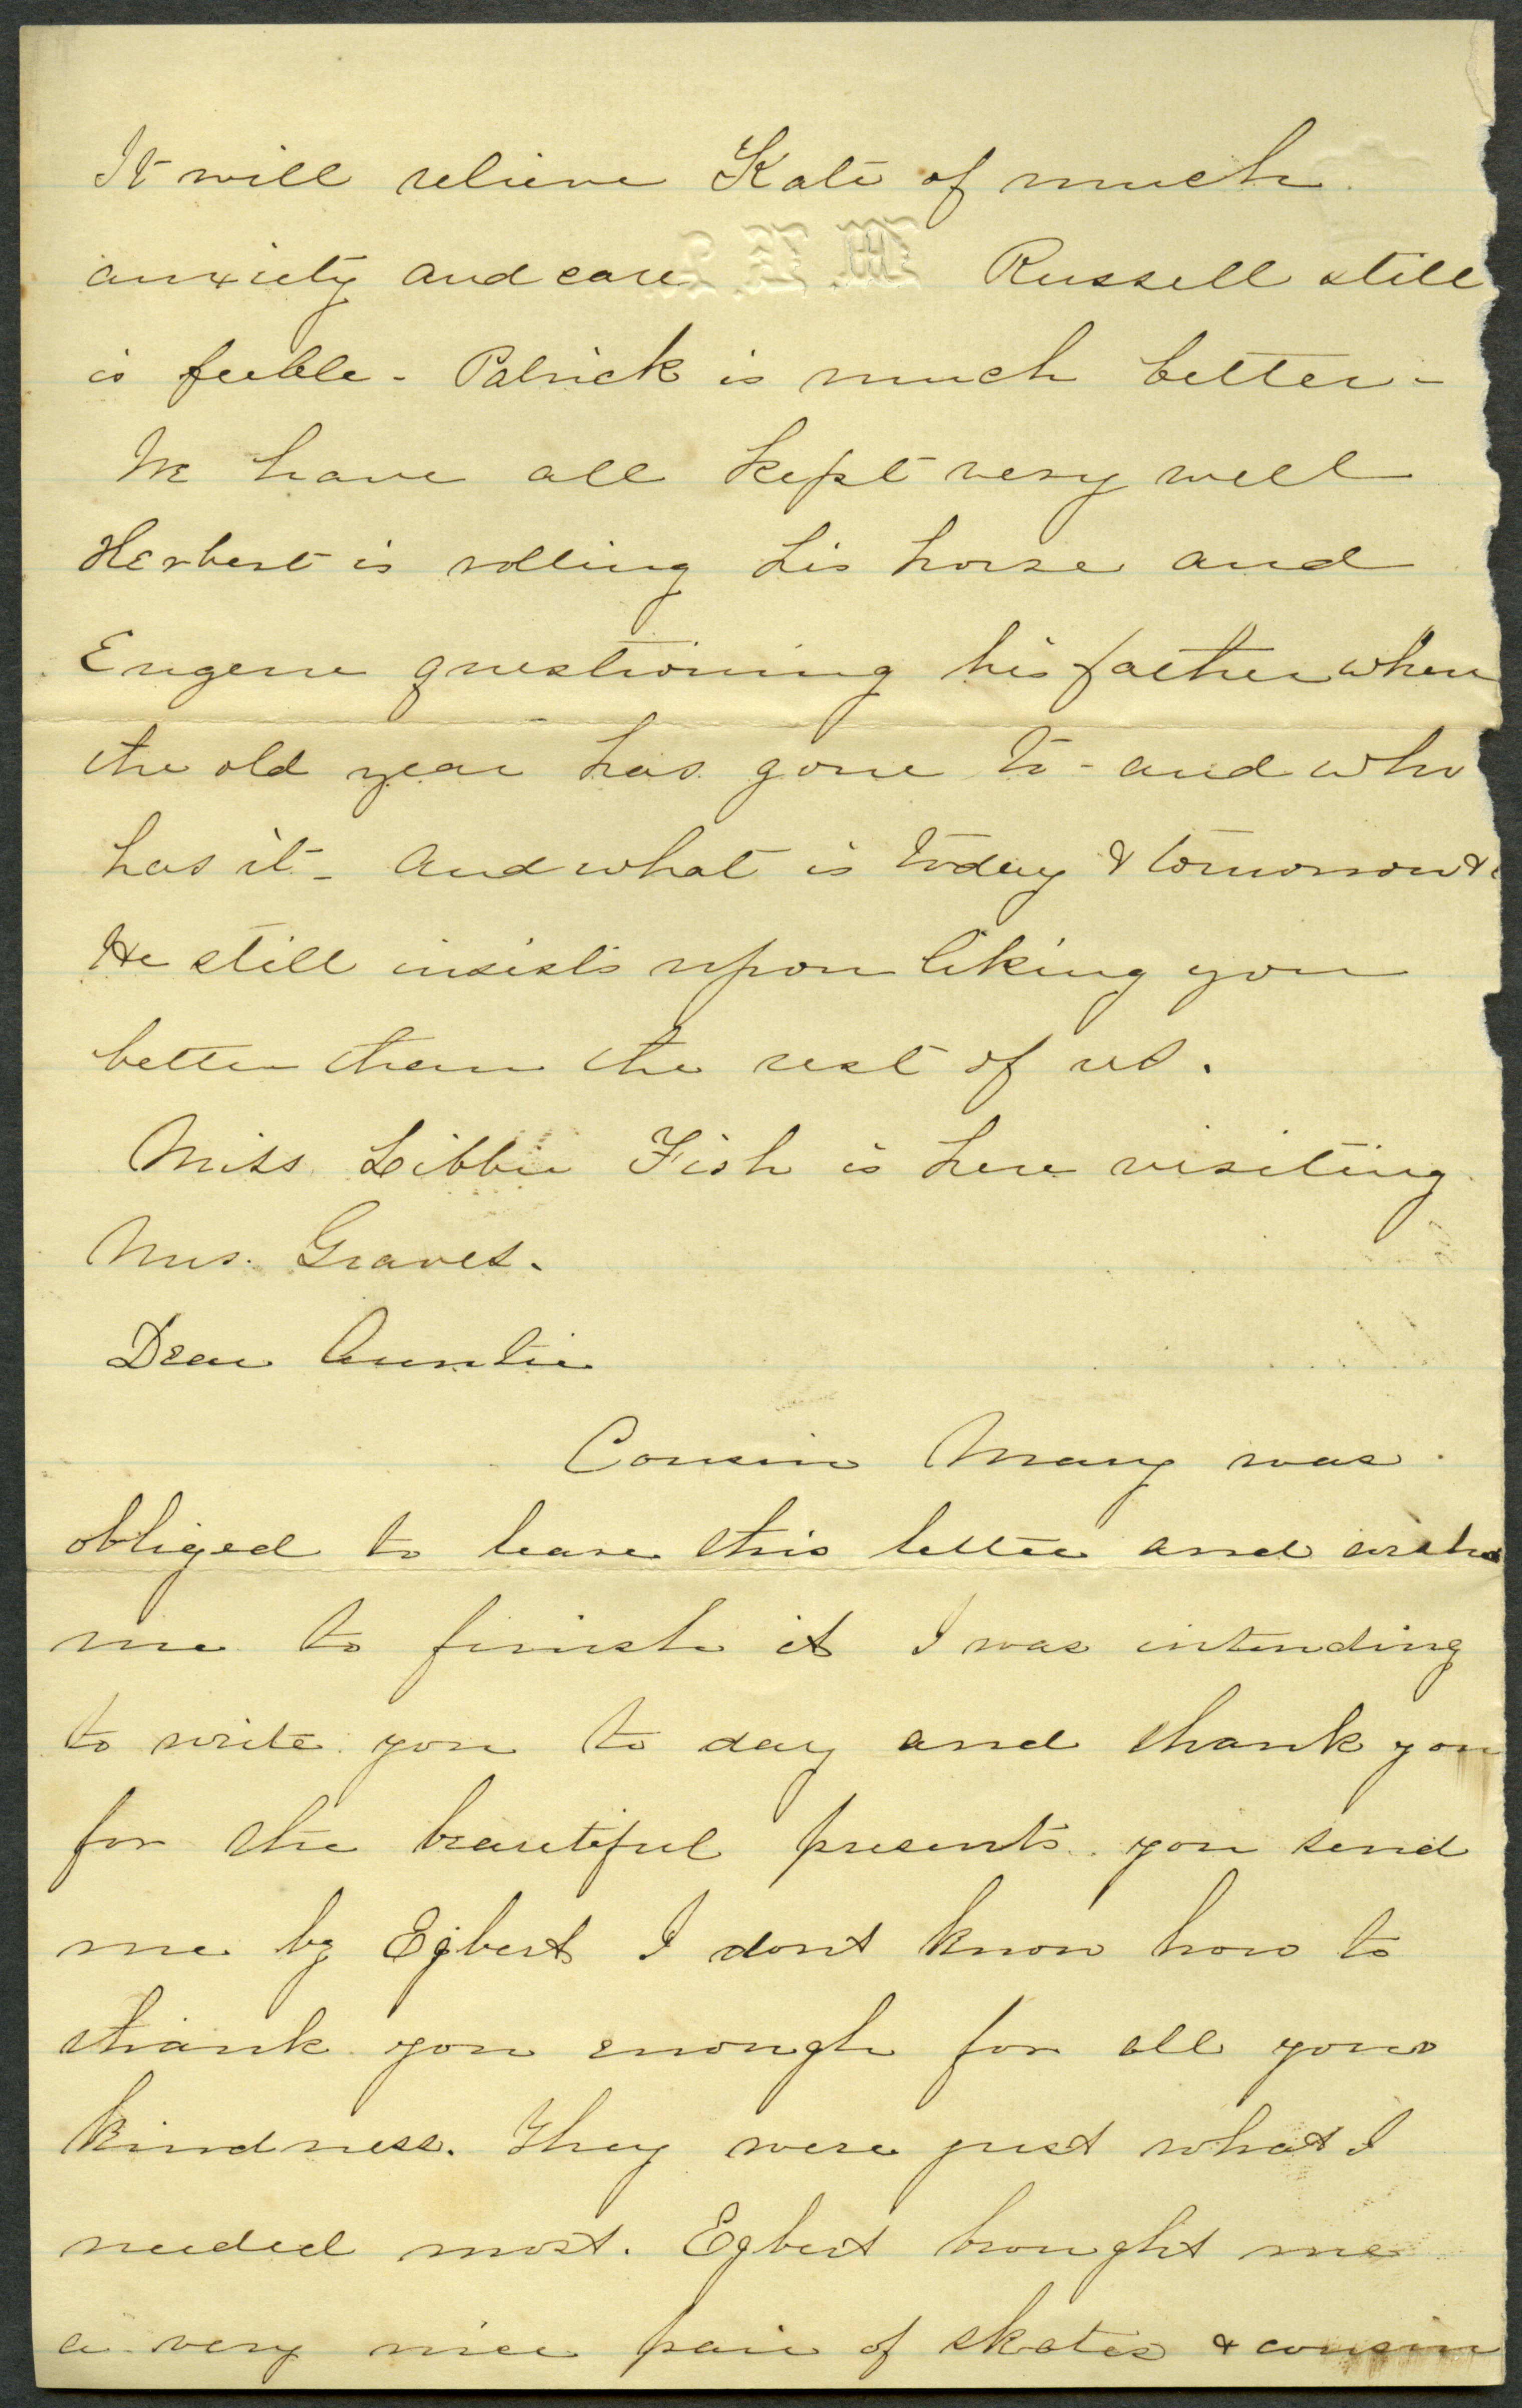 It will relieve Kate of much
anxiety and care Russell still
is feeble - Patrick is much better -
We have all kept very well
Herbert is rolling his horse and
Eugene questioning his father where
the old year has gone to - and who
has it - And what is today & tomorrow &
He still insists upon liking you
better than the rest of us.
Miss Libbie Fish is here visiting
Mrs. Graves.
Dear Auntie
Cousin Mary was
obliged to leave this letter and wished
me to finish it I was intending
to write you to day and thank you
for the beautiful presents you send
me by Egbert I dont know how to
thank you enough for all your
kindness. They were just what I
needed most. Egbert brought me
a very nice pair of skates & cousin